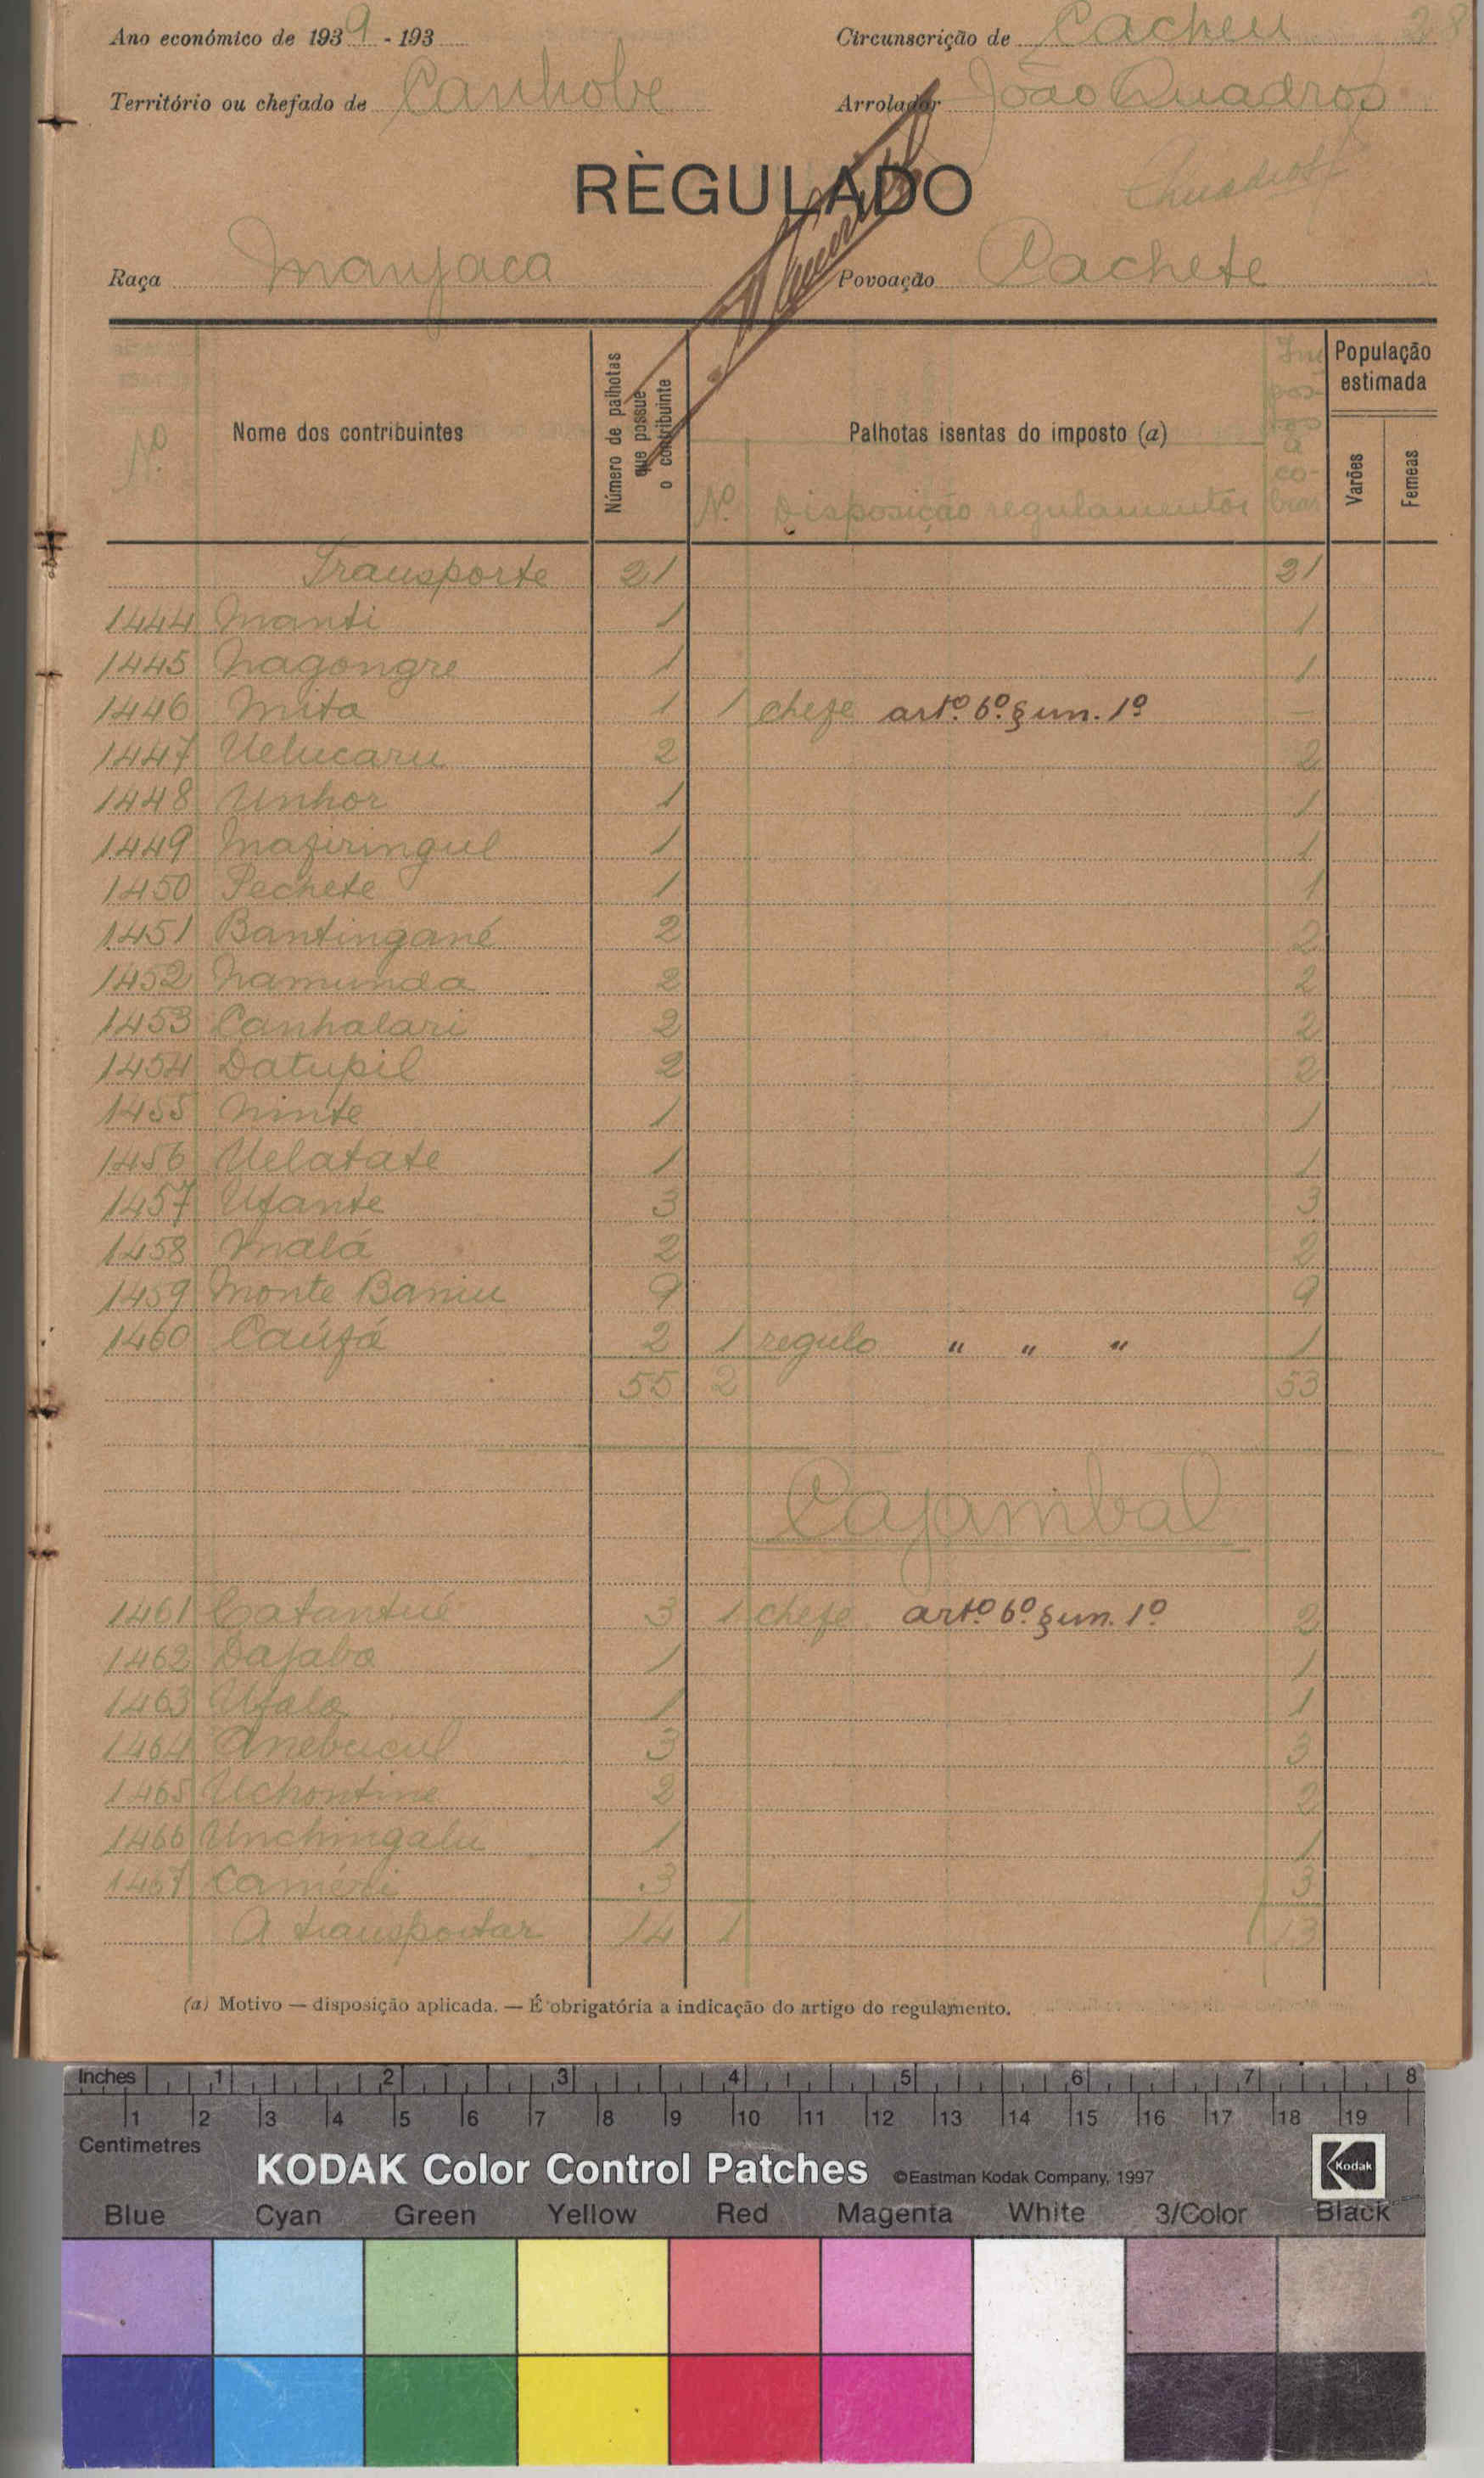 Ano económico de 1939 - 193 Circunscrição de Cacheu 28
Território ou chefado de Canhobe Arrolador João Quadros
RÈGULADO
Raça Manjaca Povoação Cachete
Nº Nome dos contribuintes Número de palhotas que possue o contribuinte Palhotas isentas do imposto (a) Impostos a cobrar População estimada
Nº Disposição regulamentar Varões Femeas
Transporte 21 21
1444 Manti 1 1
1445 Nagongre 1 1
1446 Mita 1 1 chefe artº 6º § un. 1º —
1447 Uelucaru 2 2
1448 Unhor 1 1
1449 Mafiringul 1 1
1450 Pechete 1 1
1451 Bantingané 2 2
1452 Namunda 2 2
1453 Canhalari 2 2
1454 Datupil 2 2
1455 Ninte 1 1
1456 Uelatate 1 1
1457 Ufante 3 3
1458 Malá 2 2
1459 Monte Baniu 9 9
1460 Caúfá 2 1 regulo " " " 1
55 2 53
Cajambal
1461 Catantué 3 1 chefe artº 6º § un. 1º 2
1462 Dajabo 1 1
1463 Ufala 1 1
1464 Anebucul 3 3
1465 Uchontine 2 2
1466 Unchingalu 1 1
1467 Caméri 3 3
A transportar 14 1 13
(a) Motivo — disposição aplicada. — É obrigatória a indicação do artigo do regulamento.
Inches 1 2 3 4 5 6 7 8
1 2 3 4 5 6 7 8 9 10 11 12 13 14 15 16 17 18 19
Centimetres
KODAK Color Control Patches ©Eastman Kodak Company, 1997 Kodak
Blue Cyan Green Yellow Red Magenta White 3/Color Black